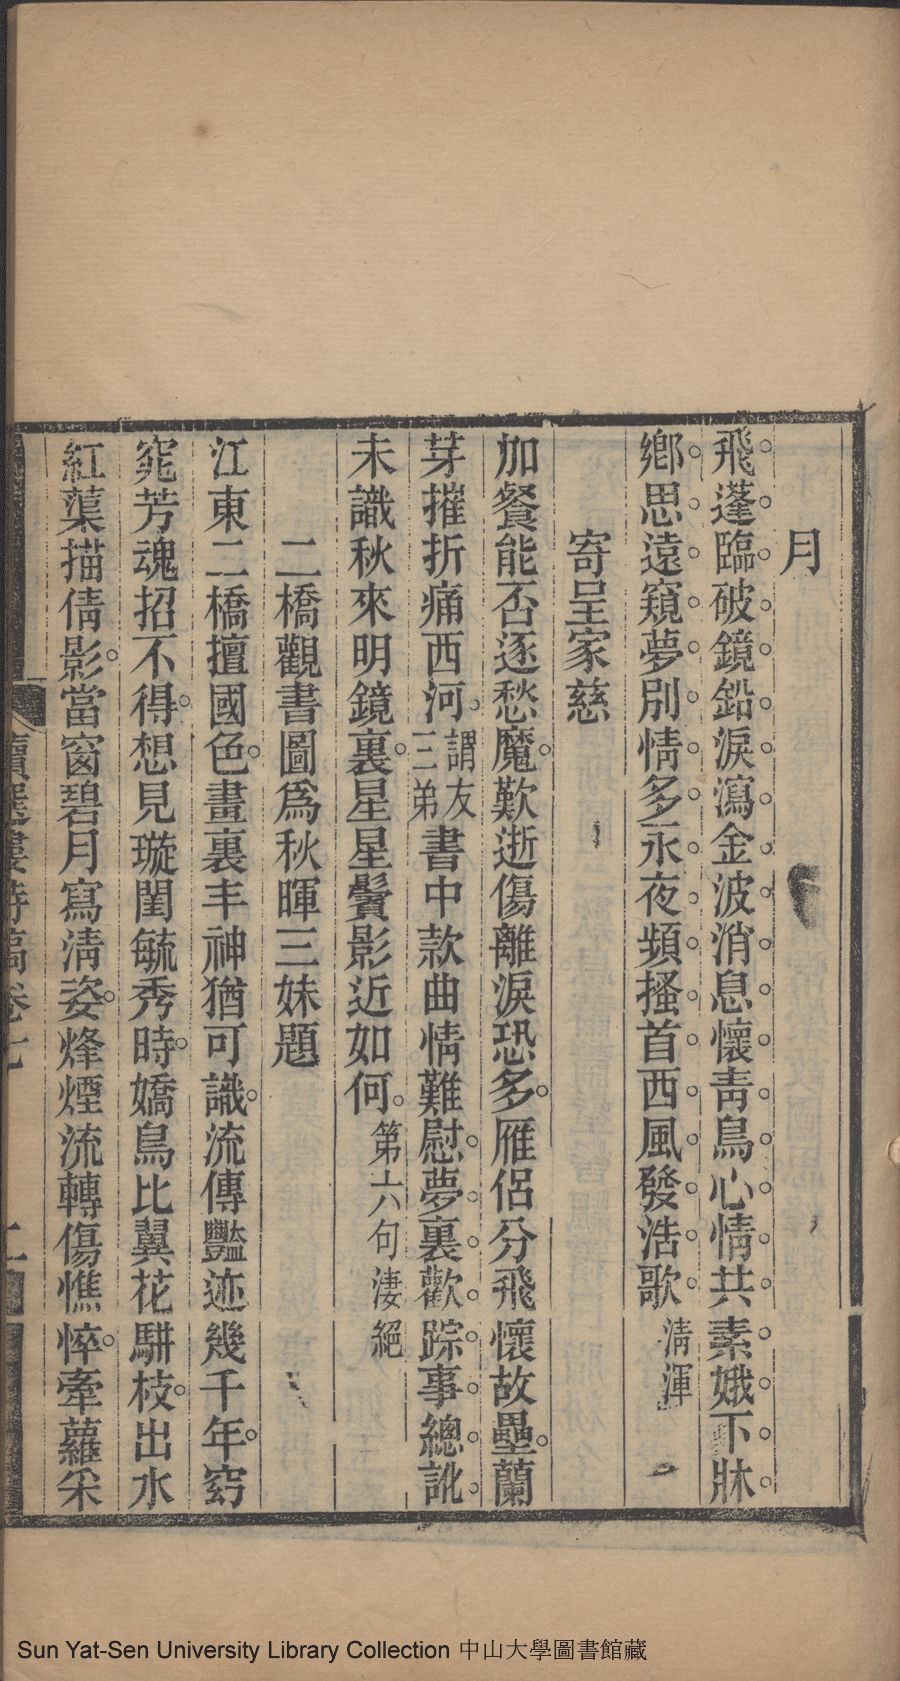 月
飛蓬臨破鏡鉛淚瀉金波消息懷靑鳥心情共素娥下牀
鄉思遠窺夢別情多永夜頻搔首西風發浩歌 淸渾
寄呈家慈
加餐能否逐愁魔歎逝傷離淚恐多雁侶分飛懷故壘蘭
芽摧折痛西河 謂友三弟 書中款曲情難慰夢裏歡踪事總訛
未識秋來明鏡裏星星鬢影近如何 第六句淒絕
二橋觀書圖爲秋暉三妹題
江東二橋擅國色畫裏丰神猶可識流傳豔迹幾千年窈
窕芳魂招不得想見璇閨毓秀時嬌鳥比翼花駢枝出水
紅蕖描倩影當窗碧月寫淸姿烽煙流轉傷憔悴牽蘿采
讀選樓詩稿卷七
Sun Yat-Sen University Library Collection 中山大學圖書館藏